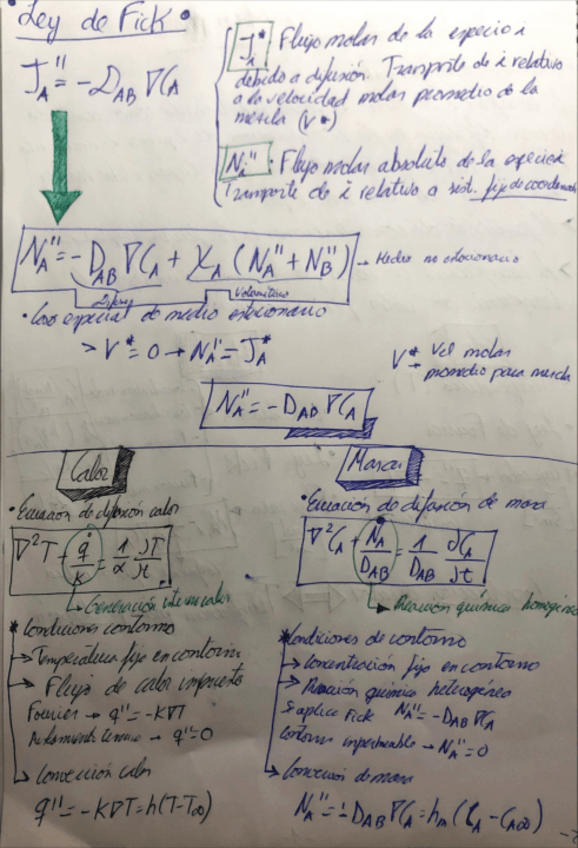 • Ley de Fick •
J_A'' = -D_AB ∇C_A
J_i* Flujo molar de la especie i
debido a difusión. Transporte de i relativo
a la velocidad molar promedio de la
mezcla (V*)
N_i'' : Flujo molar absoluto de la especie i
Transporte de i relativo a sist. fijo de coordenadas
N_A'' = -D_AB ∇C_A + X_A (N_A'' + N_B'') → Medio no estacionario
Difusivo Volumétrico
• Caso especial de medio estacionario
> V* = 0 → N_A'' = J_A*
V* → Vel molar
promedio para mezcla
N_A'' = -D_AB ∇C_A
Calor
• Ecuación de difusión calor
∇²T + q̇/k = 1/α ∂T/∂t
↳ Generación interna calor
* Condiciones contorno
→ Temperatura fija en contorno
→ Flujo de calor impuesto
Fourier → q'' = -K∇T
Aislamiento térmico → q'' = 0
→ Convección calor
q'' = -K∇T = h(T-T∞)
Masa
• Ecuación de difusión de masa
∇²C_A + Ṅ_A/D_AB = 1/D_AB ∂C_A/∂t
→ Reacción química homogénea
* Condiciones de contorno
→ Concentración fija en contorno
→ Reacción química heterogénea
Se aplica Fick N_A'' = -D_AB ∇C_A
Contorno impermeable → N_A'' = 0
→ Convección de masa
N_A'' = -D_AB ∇C_A = h_m (C_A - C_A∞)